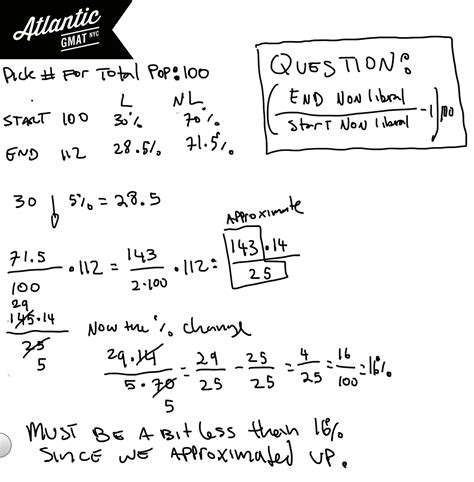 Atlantic
GMAT NYC
Pick # For Total Pop: 100
L NL
START 100 30% 70%
END 112 28.5% 71.5%
QUESTION:
(END Non liberal / Start Non liberal - 1) 100
30 ↓ 5% = 28.5
Approximate
71.5/100 · 112 = 143/2·100 · 112 = 143·14/25
29
145·14/25
5
Now the % change
29·14/5·70 = 29/25 - 25/25 = 4/25 = 16/100 = 16%
5
MUST BE A bit less than 16%
SINCE WE APProximated UP.